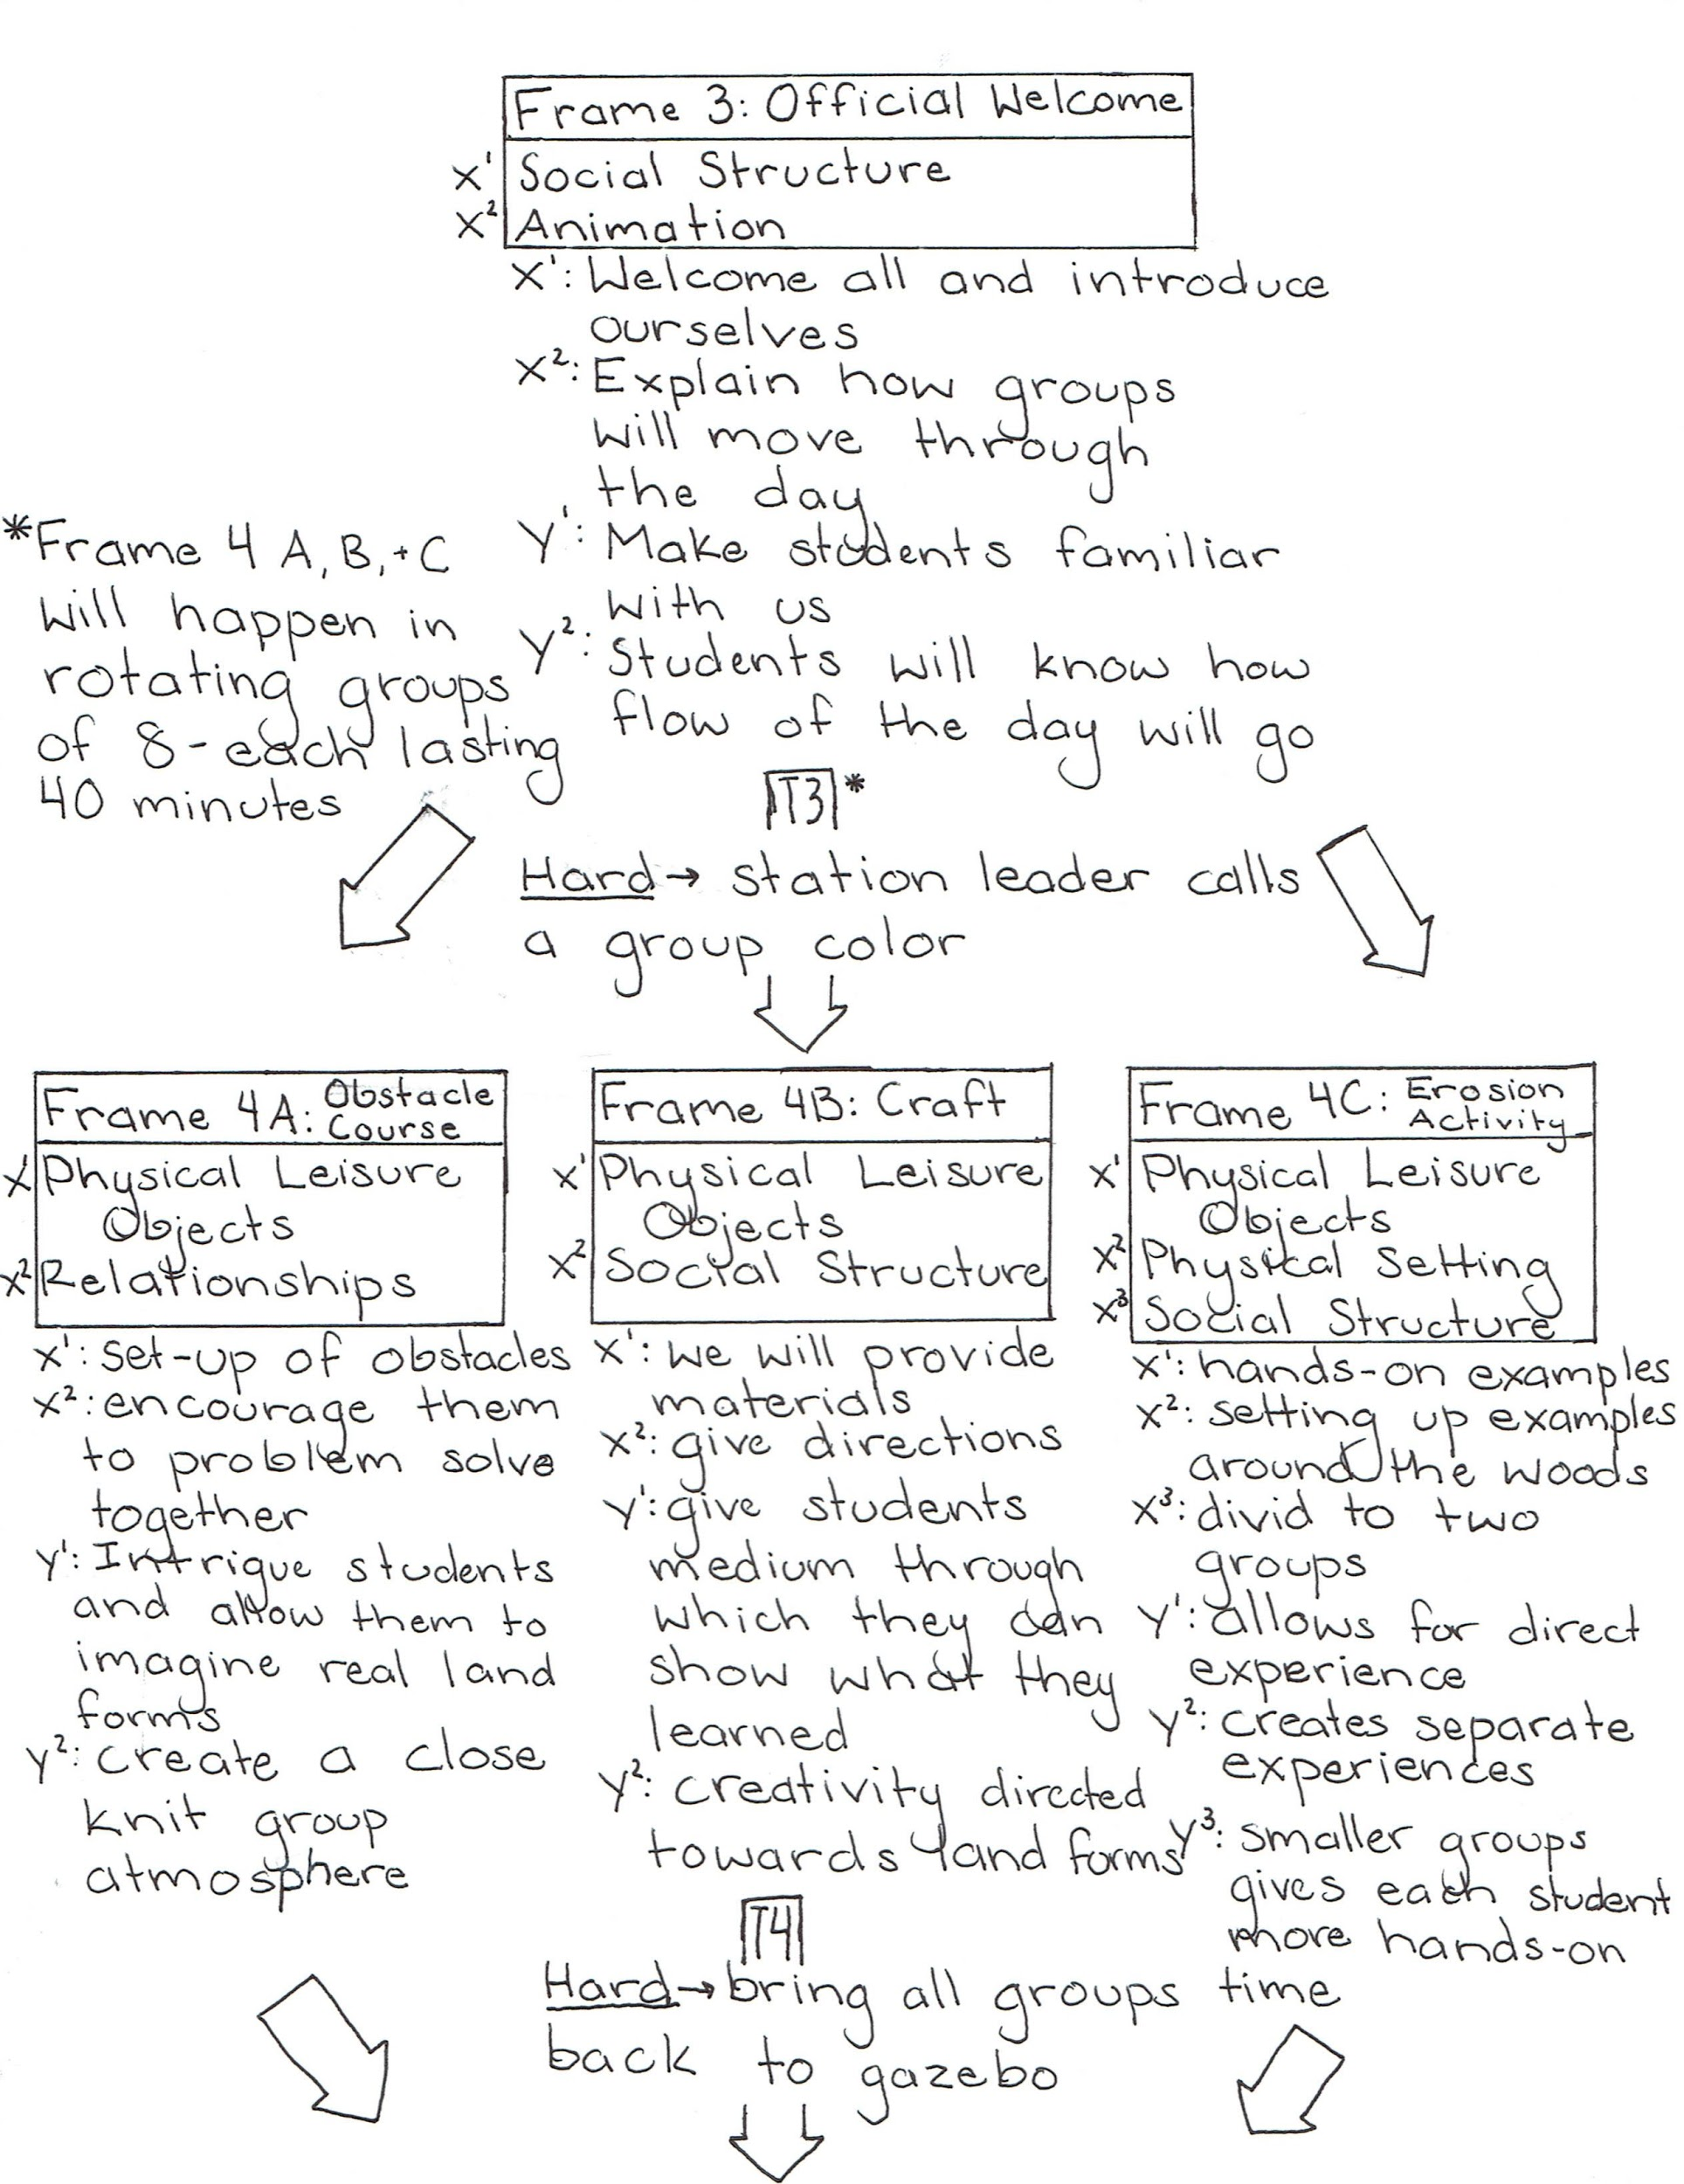 Frame 3: Official Welcome
X¹ Social Structure
X² Animation
X¹: Welcome all and introduce
ourselves
X²: Explain how groups
will move through
the day
Y¹: Make students familiar
with us
Y²: Students will know how
flow of the day will go
*Frame 4 A, B, + C
will happen in
rotating groups
of 8 - each lasting
40 minutes
T3 *
Hard → station leader calls
a group color
Frame 4A: Obstacle
Course
X¹ Physical Leisure
Objects
X² Relationships
X¹: set-up of obstacles
X²: encourage them
to problem solve
together
Y¹: Intrigue students
and allow them to
imagine real land
forms
Y²: create a close
knit group
atmosphere
Frame 4B: Craft
X¹ Physical Leisure
Objects
X² Social Structure
X¹: we will provide
materials
X²: give directions
Y¹: give students
medium through
which they can
show what they
learned
Y²: creativity directed
towards land forms
Frame 4C: Erosion
Activity
X¹ Physical Leisure
Objects
X² Physical Setting
X³ Social Structure
X¹: hands-on examples
X²: setting up examples
around the woods
X³: divid to two
groups
Y¹: allows for direct
experience
Y²: creates separate
experiences
Y³: smaller groups
gives each student
more hands-on
time
T4
Hard → bring all groups
back to gazebo